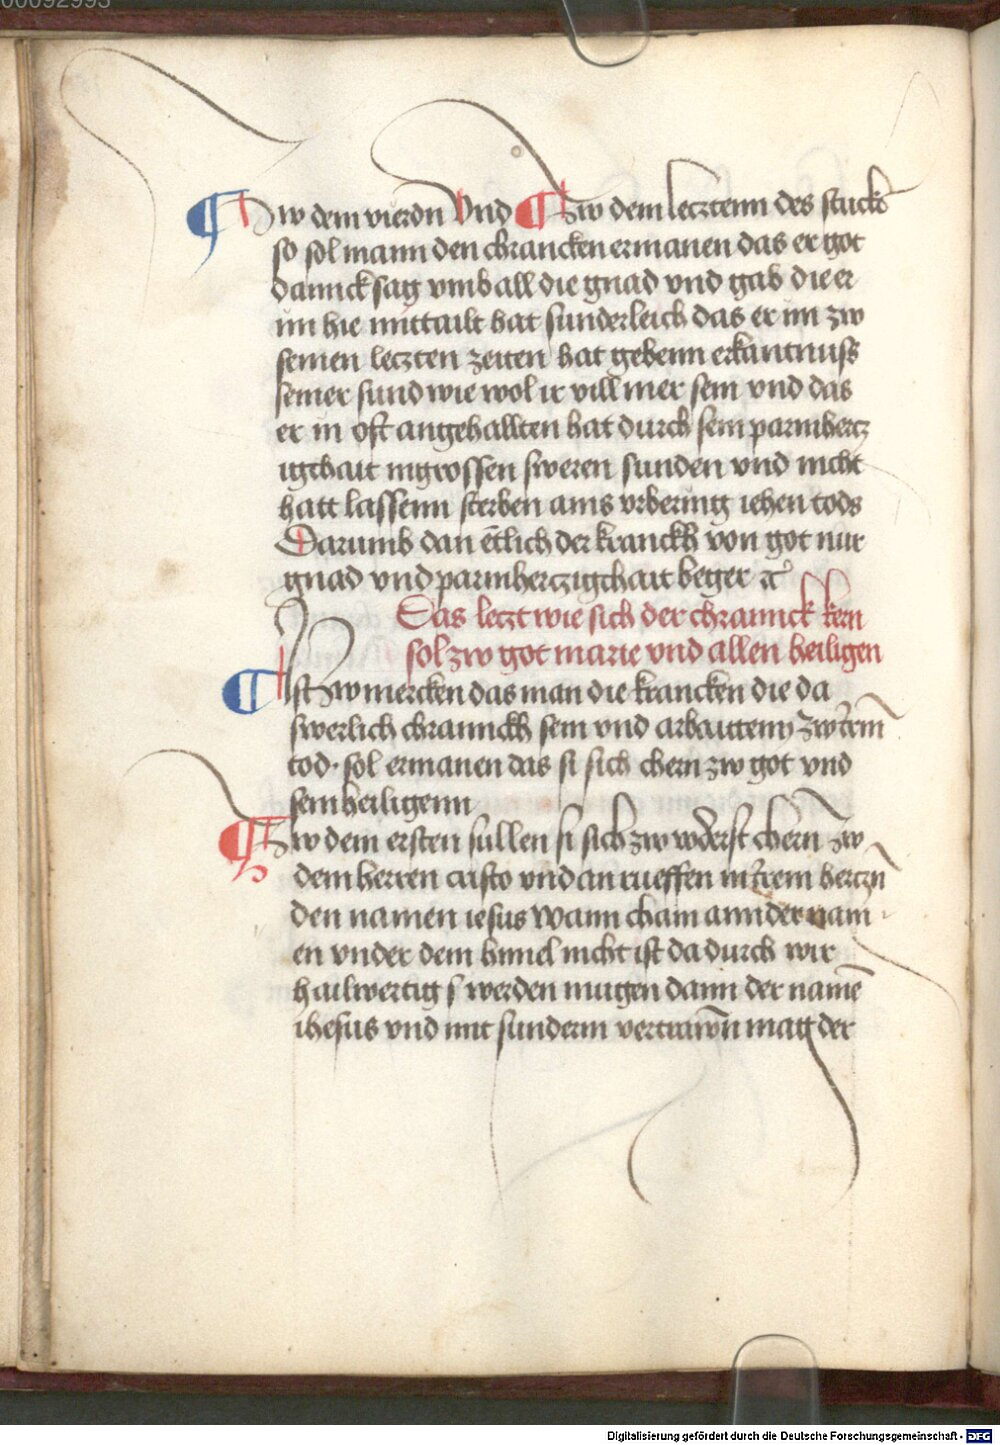 00092993
¶ Zw dem vierdn Vnd ¶ Zw dem lecztenn des stucks
so sol mann den chrancken ermanen das er got
dannck sag vmb all die gnad vnd gab die er
im hie mittailt hat sunderleich das er im zw
seinen leczten zeiten hat gebenn erkantnuss
seiner sund wie wol ir vill mer sein vnd das
er in oft angehallten hat durch sein parmhercz
igchait in grossen sweren sunden vnd nicht
hatt lassenn sterben ains vrbering iehen tods
Darumb dan etlich der kranckh von got nur
gnad vnd parmherczigchait beger ꝛc
Das leczt wie sich der chrannck kern
sol zw got marie vnd allen heiligen
¶ Ist Zw mercken das man die krancken die da
swerlich chrannckh sein vnd arbaittenn Zw irem
tod · sol ermanen das si sich chern zw got vnd
sein heiligenn
¶ Zw dem ersten sullen si sich zw voderst chern zw
dem herren cristo vnd an rueffen in irem herczn̄
den namen iesus Wann chain annder nam
en vnder dem himel nicht ist da durch wir
hailwertig werden mugen dann der namē
ihesus vnd mit sunderm vertrawn̄ mag der
Digitalisierung gefördert durch die Deutsche Forschungsgemeinschaft - DFG